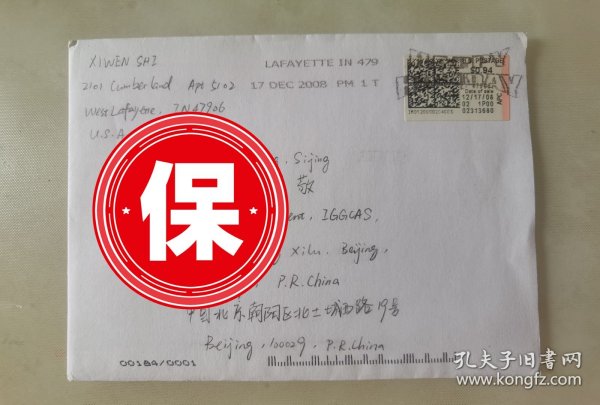 XIWEN SHI
2101 Cumberland Apt 5102
West Lafayette, IN 47906
U.S.A
LAFAYETTE IN 479
17 DEC 2008 PM 1 T
U.S. POSTAGE
$0.94
Date of sale
12/17/08
02 1P00
02313680
APC
保
, Sijing
敬
, IGGCAS,
Xilu. Beijing,
P.R.China
中国北京朝阳区北土城西路19号
Beijing, 100029, P.R.China
00184/0001
孔夫子旧书网
www.kongfz.com